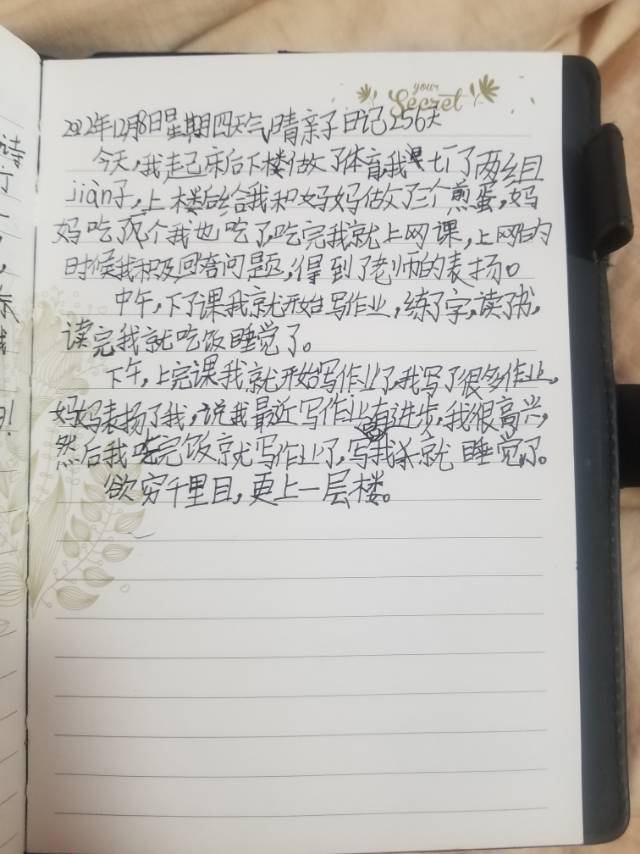 your
Secret
2022年12月8日星期四天气晴亲子日记256天
今天,我起床后下楼做了体育我是七丁了两组
jiàn子,上楼后给我和妈妈做了三个煎蛋,妈
妈吃了两个我也吃了,吃完我就上网课,上网的
时候我积极回答问题,得到了老师的表扬。
中午,下了课我就开始写作业,练了字,读了书,
读完我就吃饭睡觉了。
下午,上完课我就开始写作业了,我写了很多作业。
妈妈表扬了我,说我最近写作业有进步,我很高兴,
然后我吃完饭京尤写作业了,写我就睡觉了。
欲穷千里目,更上一层楼。
诗
了
示
我
!